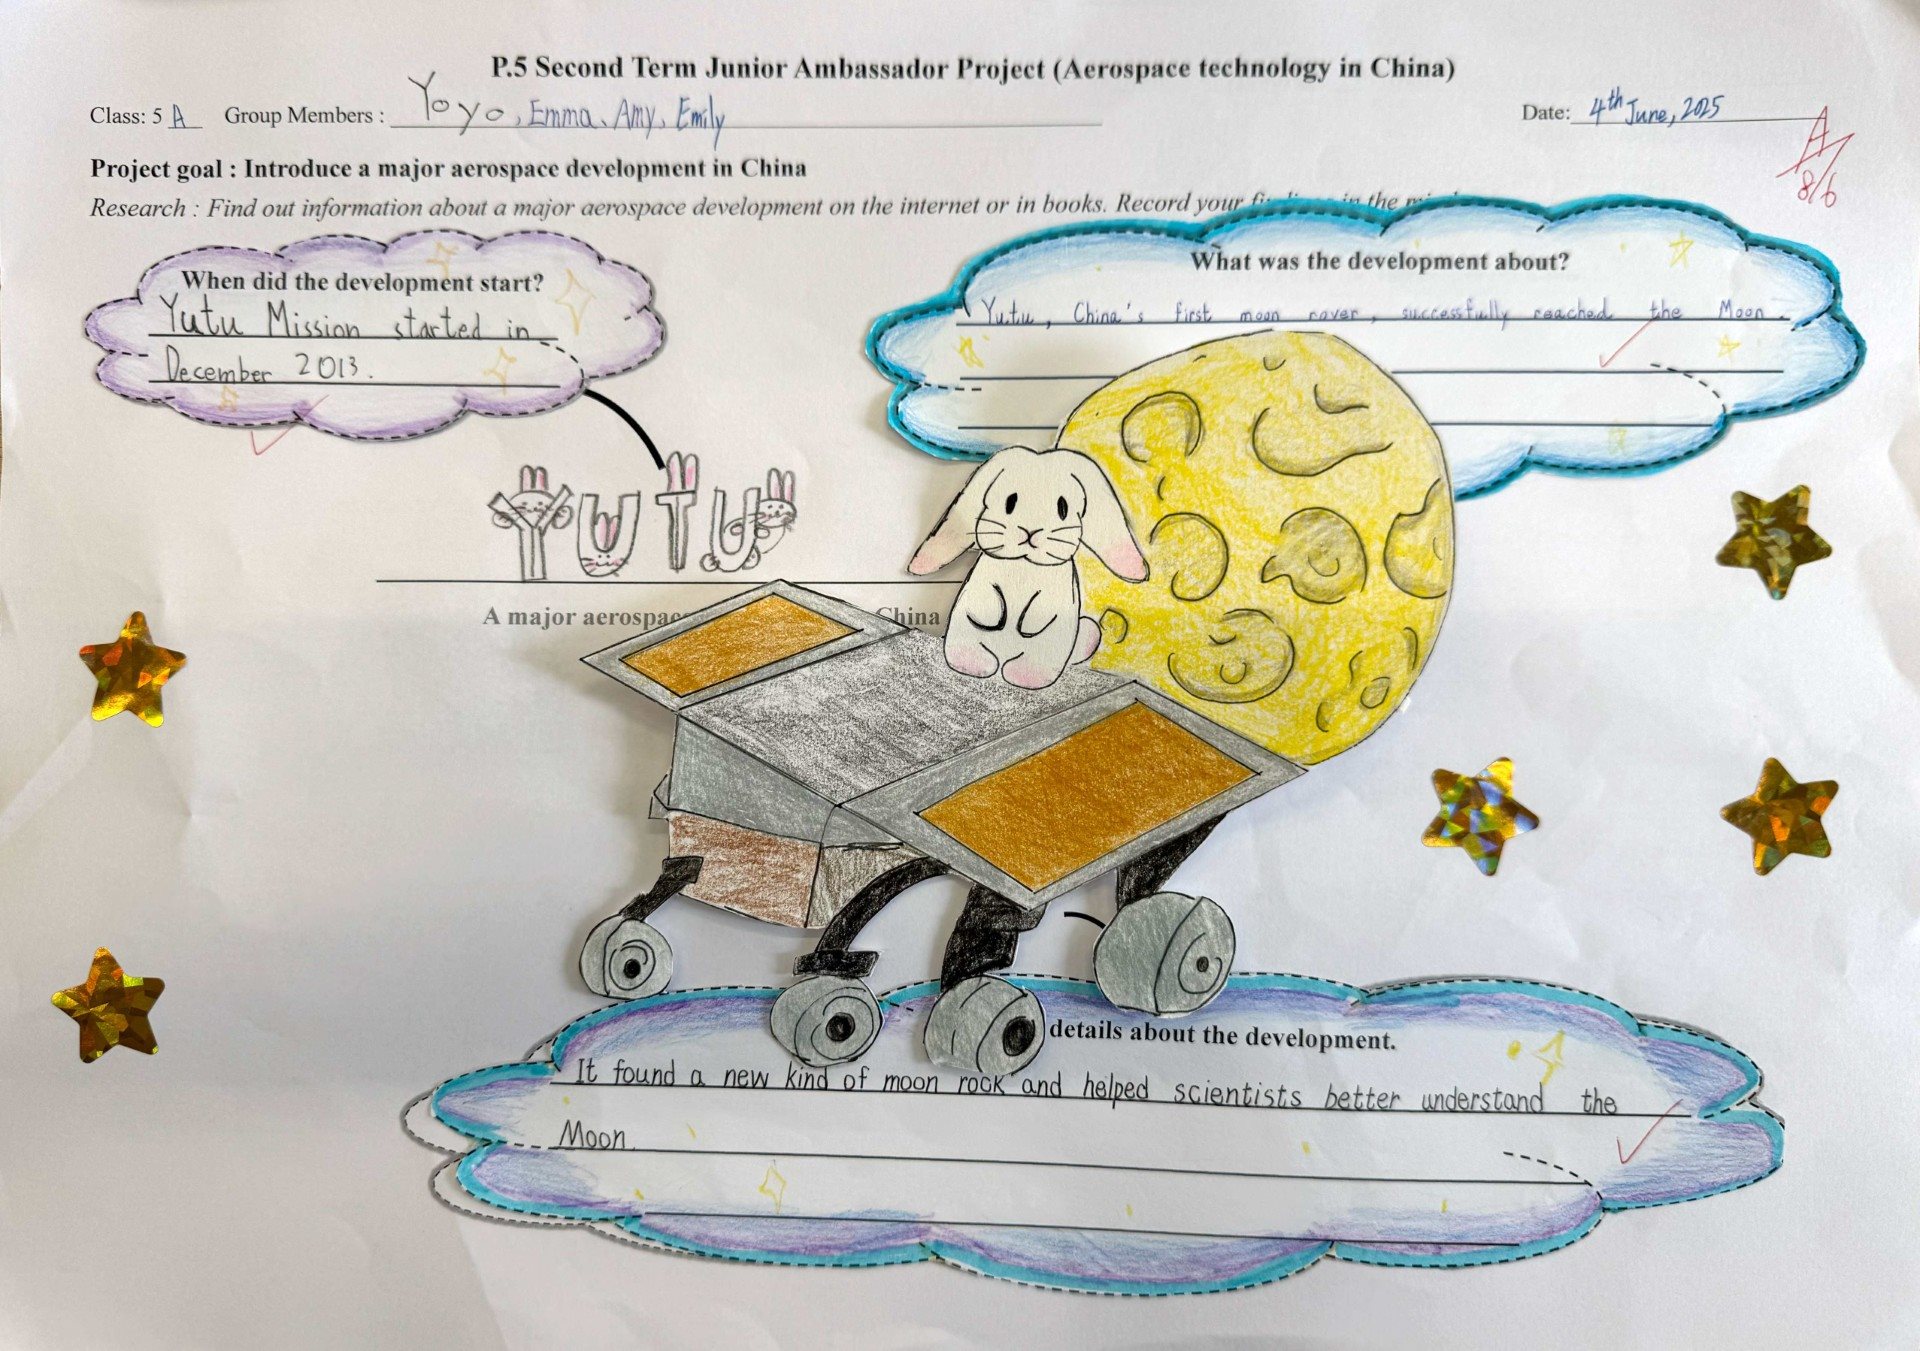 P.5 Second Term Junior Ambassador Project (Aerospace technology in China)
Class: 5 A Group Members : Yoyo, Emma, Amy, Emily Date: 4th June, 2025
A
8/6
Project goal : Introduce a major aerospace development in China
Research : Find out information about a major aerospace development on the internet or in books. Record your in the
When did the development start?
Yutu Mission started in
December 2013.
What was the development about?
Yutu, China's first moon rover, successfully reached the Moon.
YUTU
A major China
details about the development.
It found a new kind of moon rock and helped scientists better understand the
Moon.